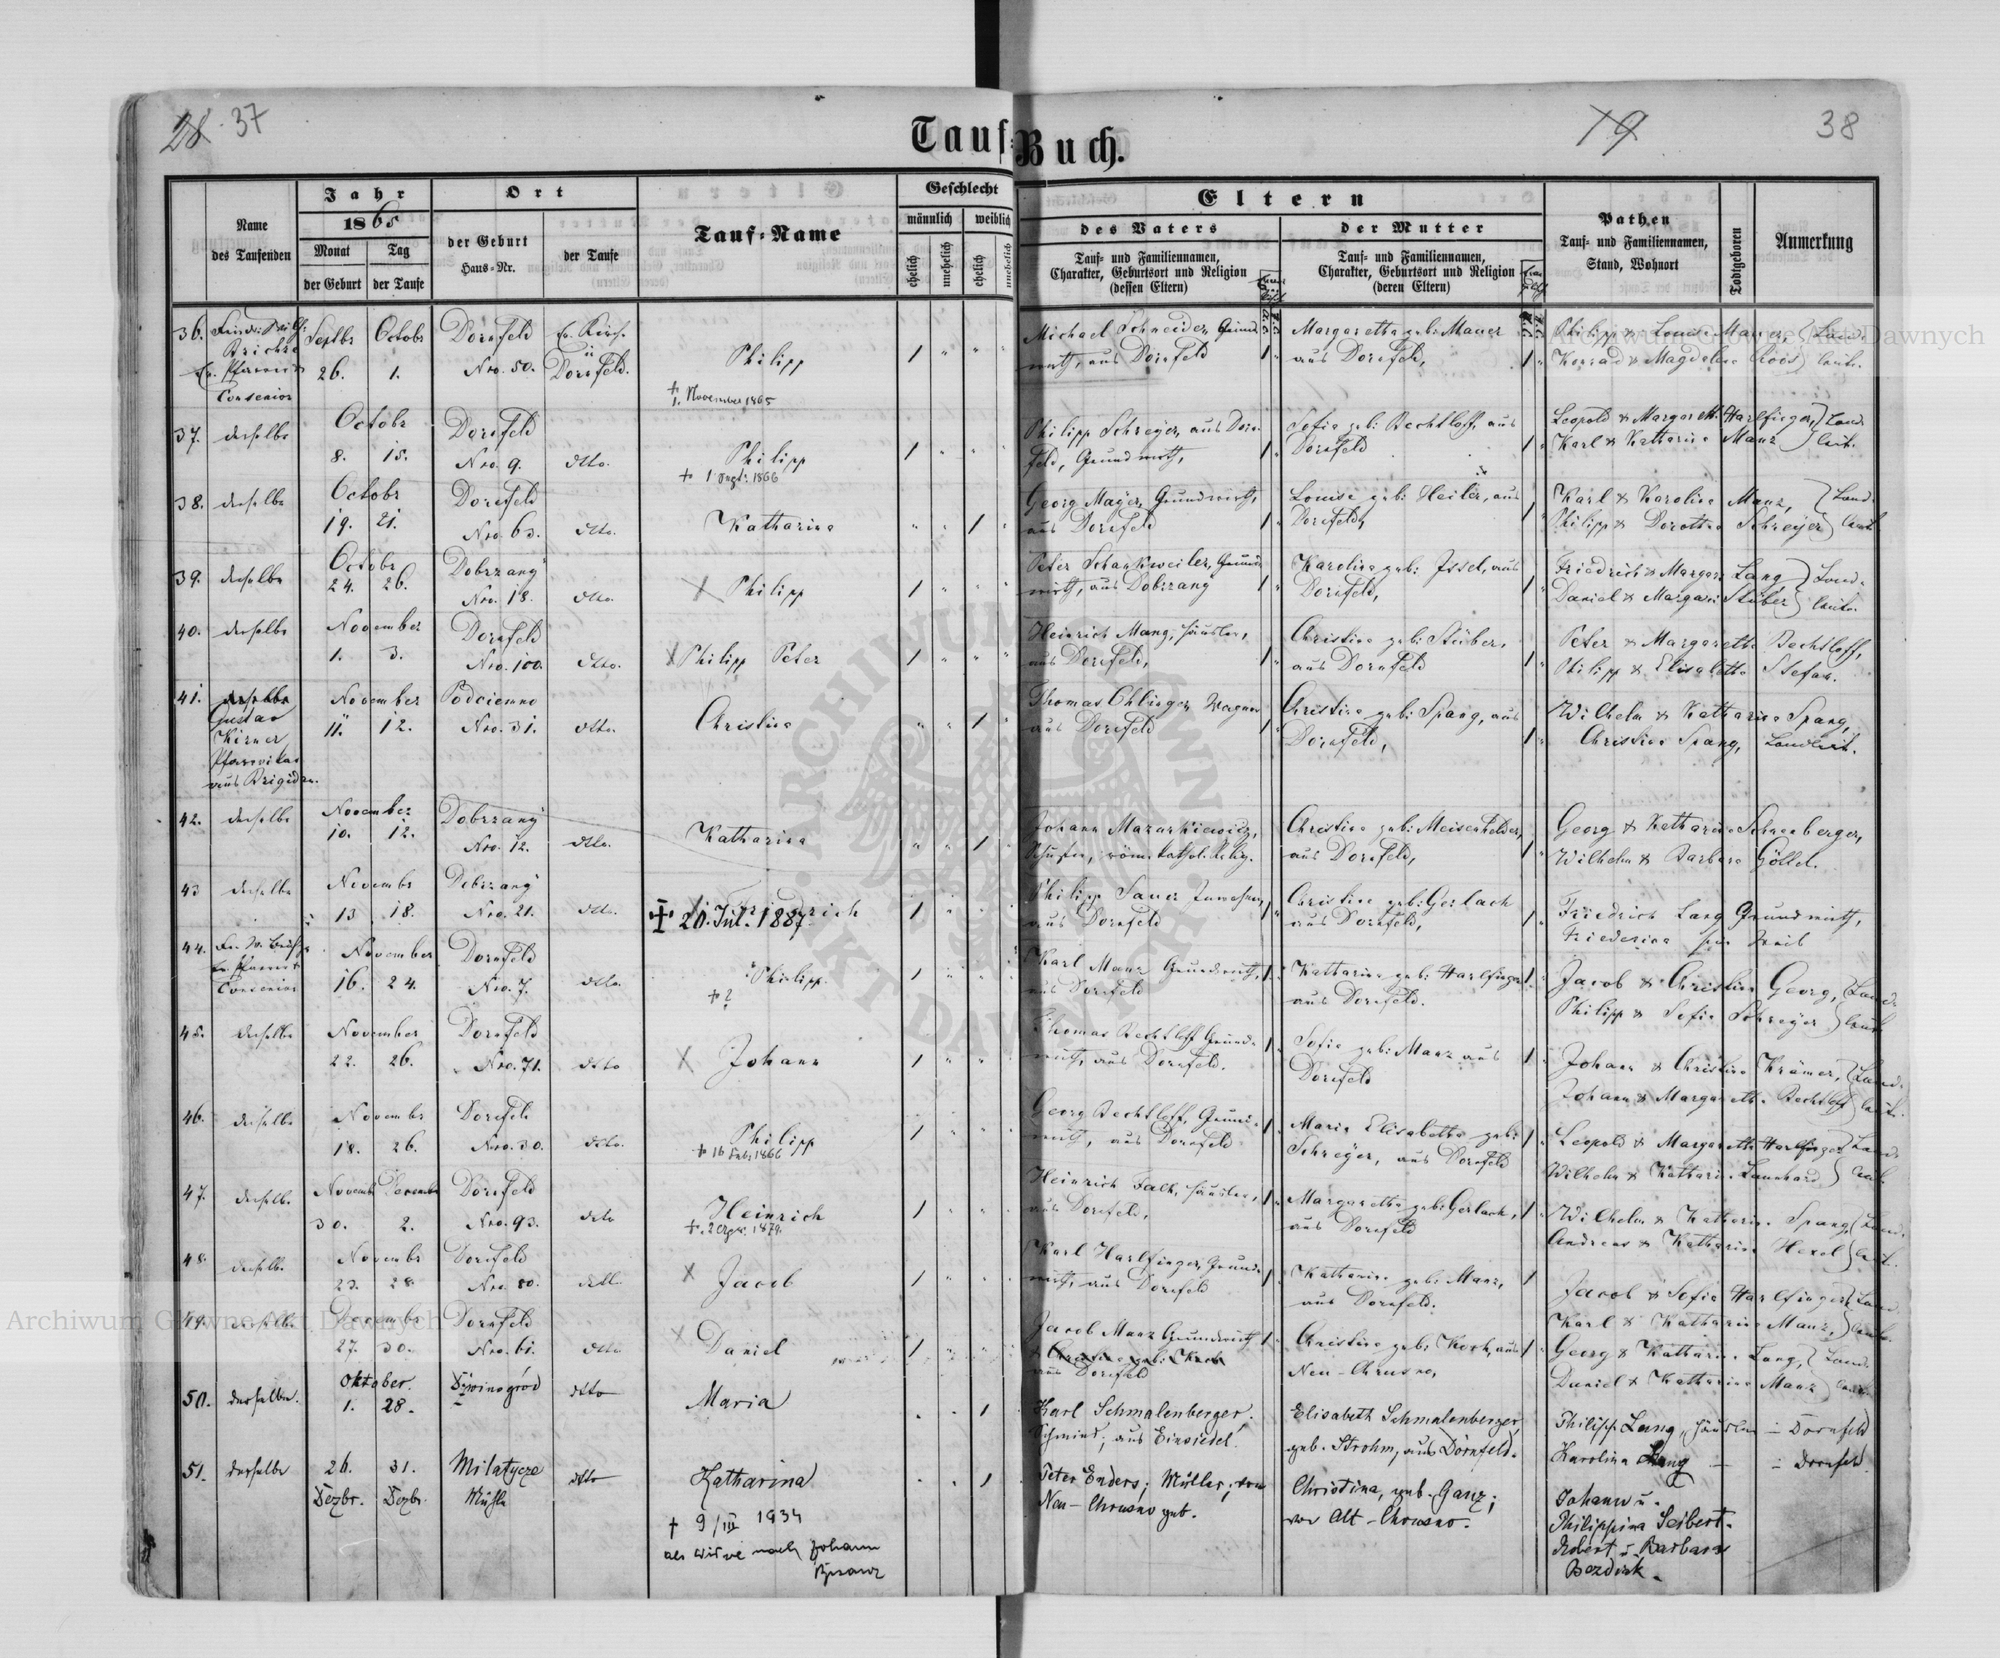 28 37
Tauf-Buch.
19 38
Name
des Taufenden
Jahr
1865
Monat
der Geburt
Tag
der Taufe
Ort
der Geburt
Haus-Nr.
der Taufe
Tauf-Name
Geschlecht
männlich
weiblich
ehelich
unehelich
ehelich
unehelich
Eltern
des Vaters
Tauf- und Familiennamen,
Charakter, Geburtsort und Religion
(dessen Eltern)
der Mutter
Tauf- und Familiennamen,
Charakter, Geburtsort und Religion
(deren Eltern)
Pathen
Tauf- und Familiennamen,
Stand, Wohnort
Todtgeboren
Anmerkung
36. Septbr Octobr Dornfeld
Consenior 26. 1. Nro. 50. Dornfeld. Philipp 1
† 1. November 1865
Michael Schneider, Grund-
wirth, aus Dornfeld
Margaretha geb: Mauer
aus Dornfeld,
Philipp & Louise Mauer,
Konrad & Magdalena Roos
37. derselbe Octobr Dornfeld
8. 15. Nro. 9. dtto. Philipp 1
Philipp Schreyer, aus Dorn-
feld, Grundwirth,
Sofia geb: Bechtloff, aus
Dornfeld
Leopold & Margareth. Harlfinger,
Karl & Katharina Manz
38. derselbe Octobr Dornfeld
19. 21. Nro. 63. dtto. Katharina 1
Georg Mayer, Grundwirth,
aus Dornfeld
Louise geb: Heiler, aus
Dornfeld,
Karl & Karolina Manz,
Philipp & Dorothea Schreyer
39. derselbe Octobr Dobrzany
24. 26. Nro. 18. dtto. Philipp 1
Peter Schankweiler, Grund-
wirth, aus Dobrzany
Karolina geb: Issel, aus
Dornfeld,
Friedrich & Margar. Lang
Daniel & Margar. Stüber
40. derselbe November Dornfeld
1. 3. Nro. 100. dtto. Philipp Peter 1
Heinrich Mang, Häusler,
aus Dornfeld,
Christina geb: Stüber,
aus Dornfeld
Peter & Margaretha Bechtloff,
Philipp & Elisabetha Stefan.
41. derselbe November Podciemno
Gustav
Kirner 11. 12. Nro. 31. dtto. Christina 1
Pfarrvikar
aus Brigidau.
Thomas Ohlinger Wagner
aus Dornfeld
Christina geb: Spang, aus
Dornfeld,
Wilhelm & Katharina Spang,
Christina Spang, Landleut.
42. derselbe November Dobrzany
10. 12. Nro. 12. dtto. Katharina 1
Johann Mazurkiewicz,
Schuster, röm. kathol. Relig.
Christina geb: Meisenhelder,
aus Dornfeld,
Georg & Katharina Schneeberger,
Wilhelm & Barbara Göllel.
43 derselbe Novembr Dobrzany
13 18. Nro. 21. dtto. Friedrich 1
‡ 20. Jul. 1887
Philipp Sauer Inwohner,
aus Dornfeld
Christina geb: Gerlach
aus Dornfeld,
Friedrich Lang Grundwirth,
Friederica sein Weib
44. November Dornfeld
Consenior 16. 24. Nro. 7. dtto. Philipp 1
† ?
Karl Manz Grundwirth,
aus Dornfeld
Katharina geb: Harlfinger
aus Dornfeld.
Jacob & Christina Georg,
Philipp & Sofia Schreyer
45. derselbe November Dornfeld
22. 26. Nro. 71. dtto Johann 1
Thomas Bechtloff Grund-
wirth, aus Dornfeld.
Sofia geb: Manz aus
Dornfeld
Johann & Christina Krämer,
Johann & Margareth. Bechtloff
46. derselbe Novembr Dornfeld
18. 26. Nro. 30. dtto. Philipp 1
† 16 Febr 1866
Georg Bechtloff, Grund-
wirth, aus Dornfeld
Maria Elisabetha geb:
Schreyer, aus Dornfeld
Leopold & Margaretha Harlfinger
Wilhelm & Katharin. Launhard
47. derselbe Novembr Decembr Dornfeld
30. 2. Nro. 93. dtto Heinrich 1
Heinrich Falk, Häusler,
aus Dornfeld,
Margaretha geb: Gerlach,
aus Dornfeld
Wilhelm & Katharina Spang
Andreas & Katharina Hexel
48. derselbe Novembr Dornfeld
23. 28. Nro. 80. dtto Jacob 1
Karl Harlfinger, Grund-
wirth, aus Dornfeld
Katharina geb: Manz,
aus Dornfeld.
Jacob & Sofia Harlfinger
Karl & Katharina Manz,
49. derselbe Decembr Dornfeld
27. 30. Nro. 61. dtto Daniel 1
Jacob Manz Grundwirth
& Christina geb: Koch
aus Dornfeld
Christina geb: Koch, aus
Neu-Chrusno,
Georg & Katharina Lang,
Daniel & Katharina Manz
50. derselbe. Oktober. Dźwinogród dtto Maria 1
1. 28.
Karl Schmalenberger,
Schmied, aus Einsiedel.
Elisabeth Schmalenberger,
geb. Strohm, aus Dornfeld.
Philipp Lang, Häusler – Dornfeld
Karolina Lang – Dornfeld.
51. derselbe 26. 31. Milatycze dtto Katharina 1
Dezbr. Dezbr. Mühle
† 9/III 1934
als Witwe nach Johann
Peter Enders, Müller, von
Neu-Chrusno geb.
Christina, geb. Ganz;
von Alt-Chrusno.
Johann u.
Philippina Seibert.
Robert u. Barbara
Bezdiek.
Archiwum Główne Akt Dawnych
Archiwum Główne Akt Dawnych
ARCHIWUM GŁÓWNE AKT DAWNYCH